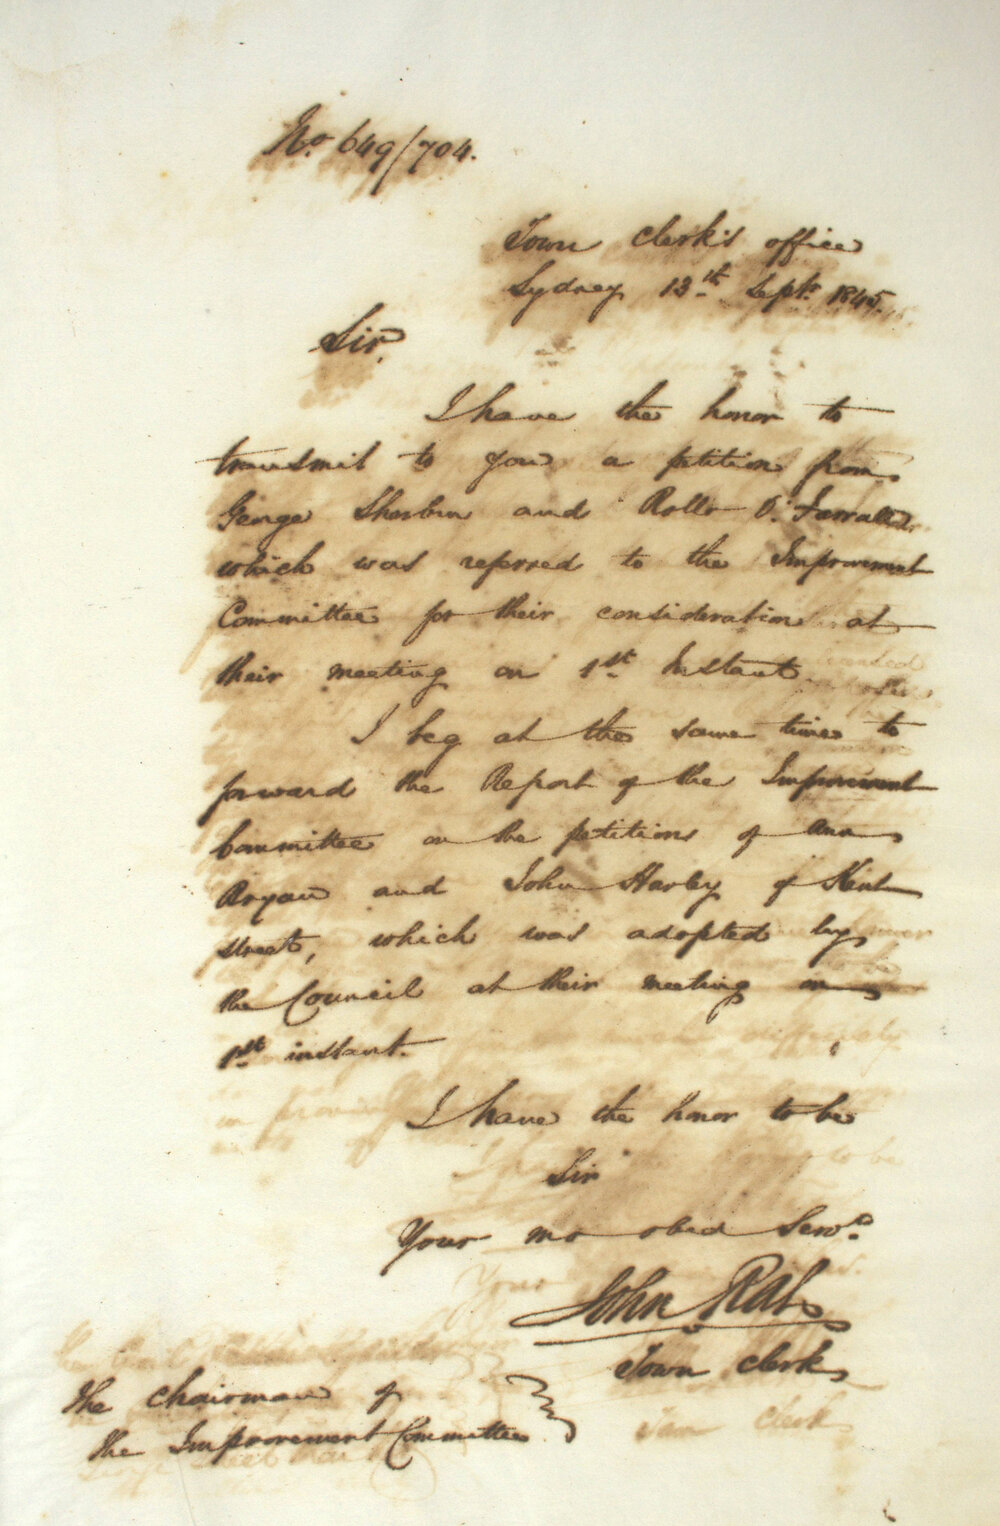 No. 649/704.
Town Clerk's office
Sydney 13th Septr. 1845.
Sir,
I have the honor to
transmit to you a petition from
George Sherbin and Rollo O'Farrall
which was referred to the Improvement
Committee for their consideration at
their meeting on 1st Instant.
I beg at the same time to
forward the Report of the Improvement
Committee on the petitions of Ann
Bryan and John Harley of Kent
street, which was adopted by
the Council at their meeting on
1st instant.
I have the honor to be
Sir
Your mo obed Serv.
John Rae
Town Clerk
The Chairman of
the Improvement Committee